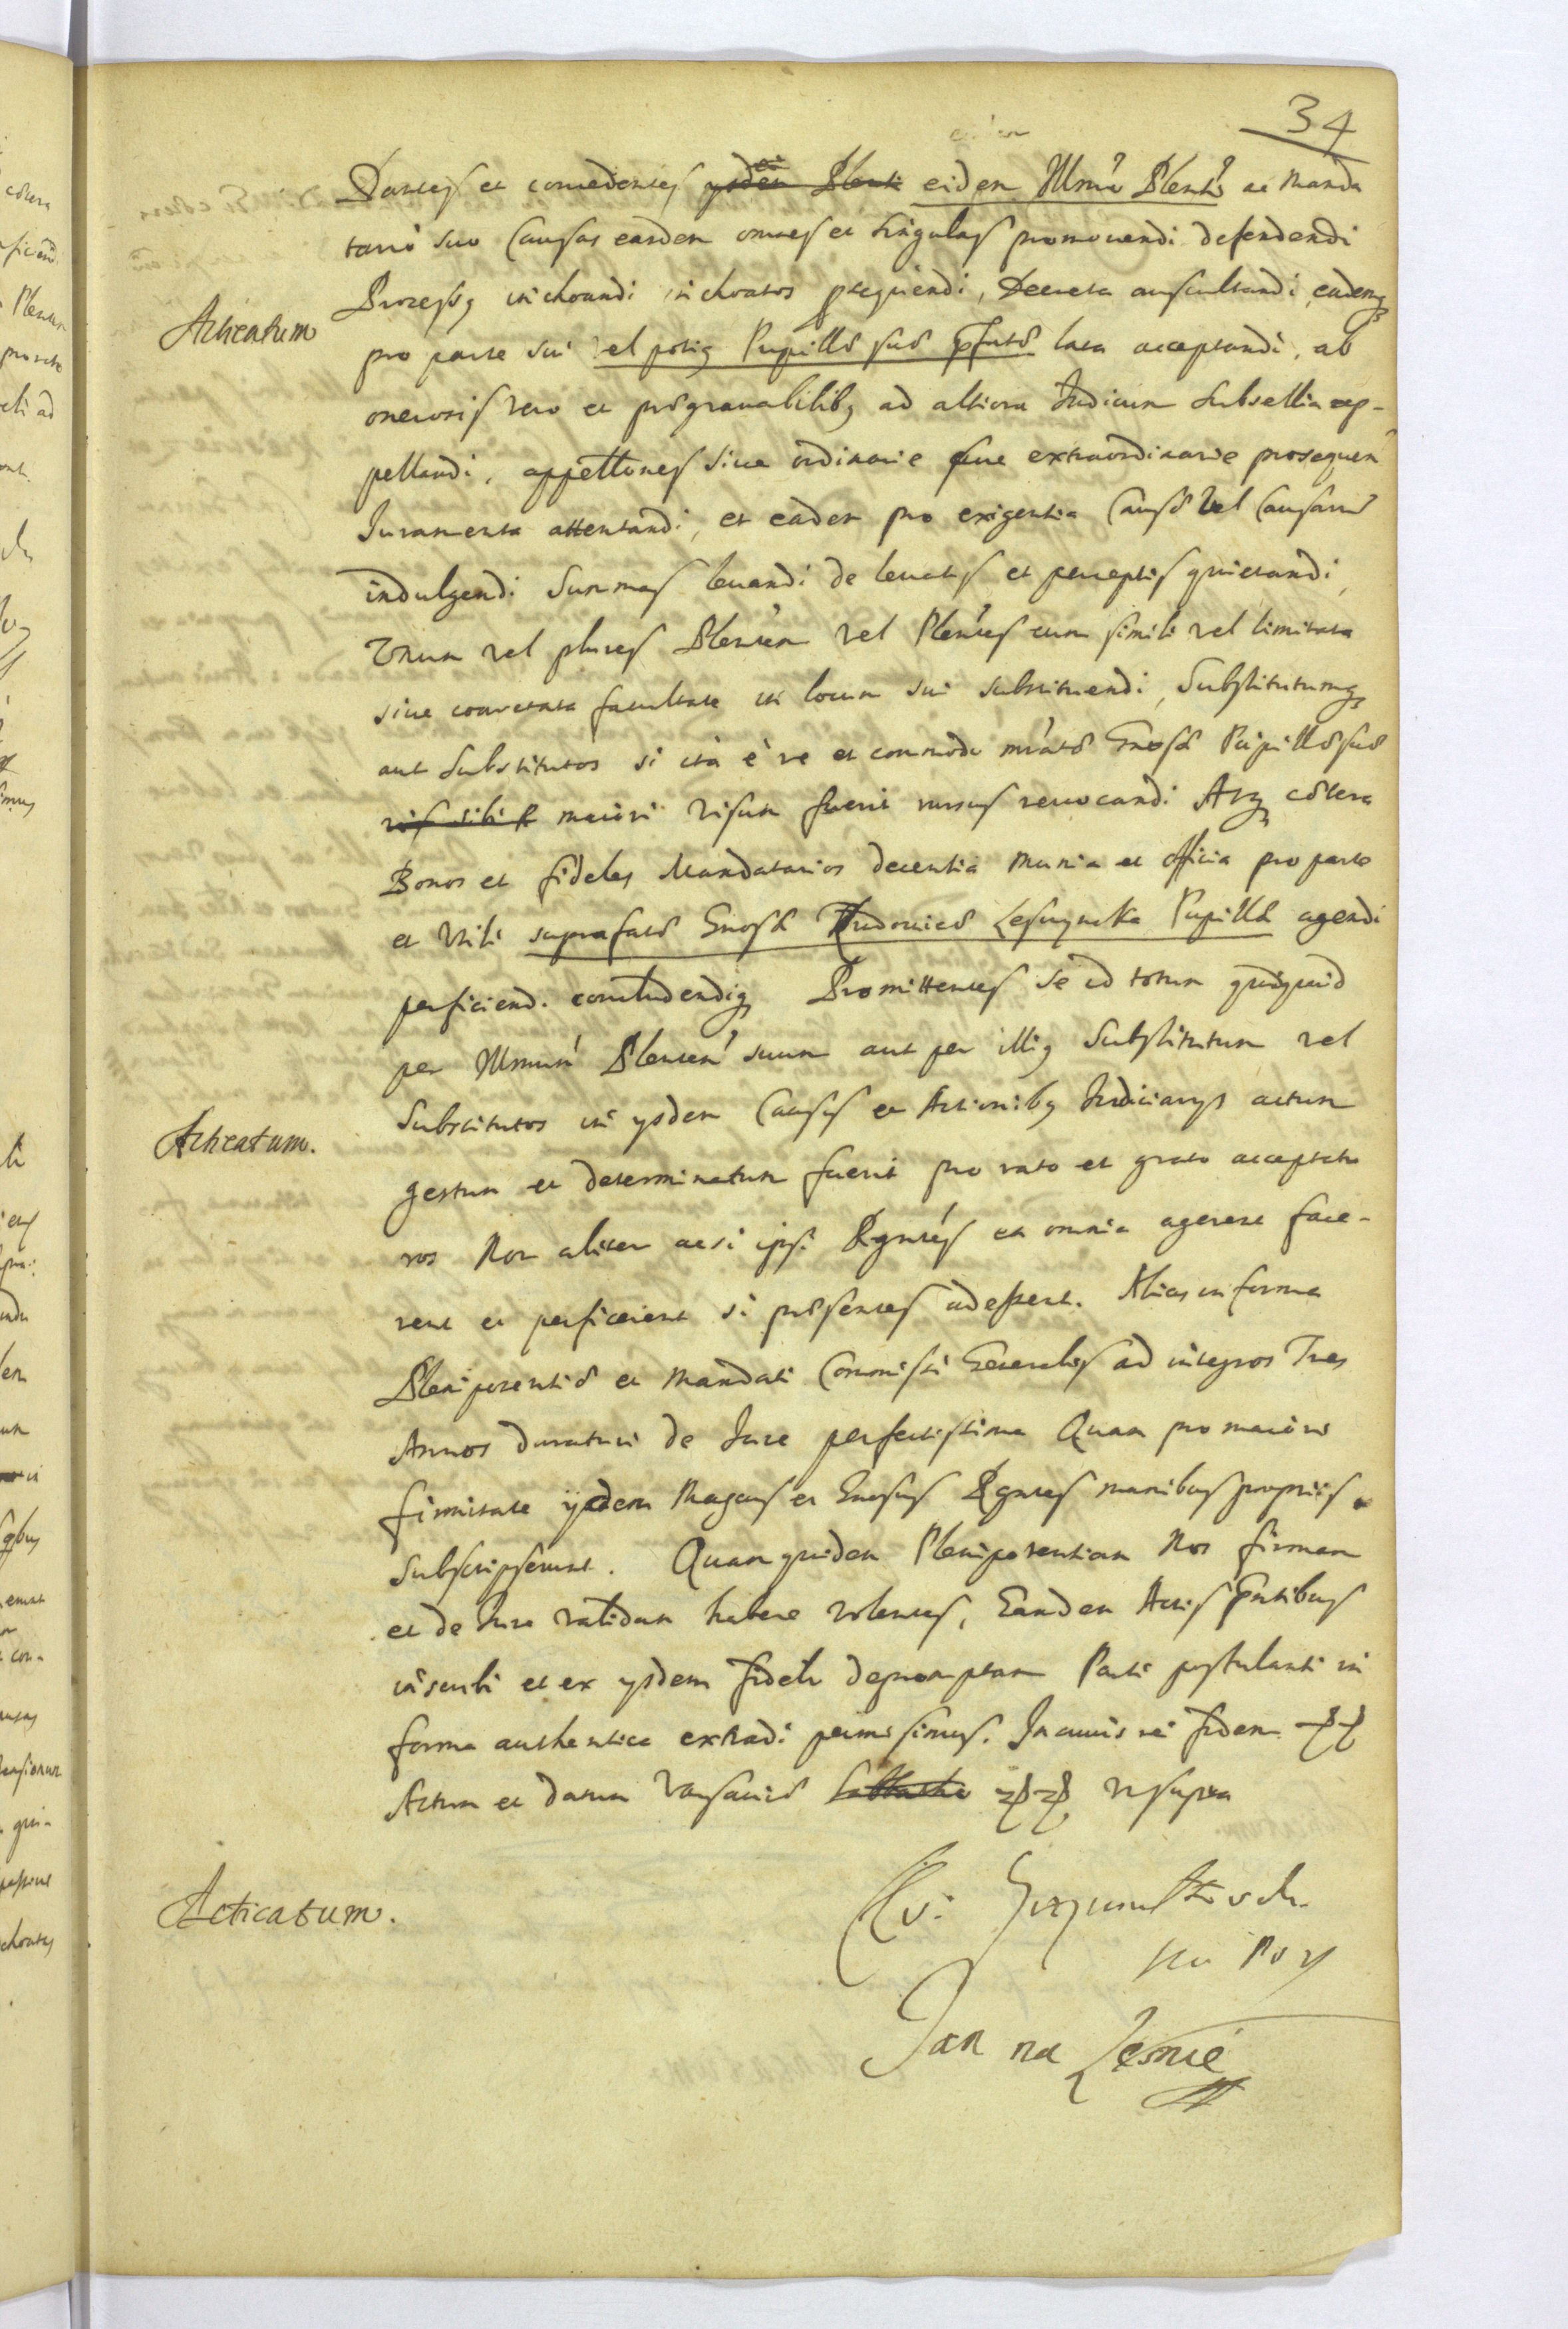 34
Dantes et concedentes eidem Illmo Plenti ac Manda
tario suo Causas easdem omnes et singulas promovendi defendendi
Processus inchoandi inchoatos psequendi, Decreta auscultandi eademq
Acticatum
pro parte sui vel potius Pupillæ suæ pfatæ lata acceptandi, ab
onerosis vero et prægravabilibus ad altiora Iudiciorum Subsellia ap-
pellandi, appellones sive ordinarie sive extraordinarie prosequen
Iuramenta attentandi, et eadem pro exigentia Causæ vel Causarum
indulgendi Summas levandi de levatis et perceptis quietandi,
Unum vel plures Plentem vel Plentes cum simili vel limitata
sive coarctata facultate in locum sui substituendi, Substitutumq
aut Substitutos si ita è re et commodo Gnosæ Pupillæ suæ
maiori visum fuerit rursus revocandi Atq cætera
Bonos et fideles Mandatarios decentia munia et officia pro parte
et Utili suprafatæ Gnosæ Ludovicæ Lesczynska Pupillæ agendi
perficiend. concludendiq Promittentes se id totum quidquid
per Illmum Plentem suum aut per illius Substitutum vel
Acticatum.
Substitutos in ysdem Causis et Actionibus Iudiciarys actum
gestum et determinatum fuerit pro rato et grato acceptatu
ros Non aliter acsi ipsi Pgntes ea omnia agerent face-
rent et perficerent si præsentes adessent. Alias in forma
Plenipotentiæ et Mandati Commissi Generalis ad integros Tres
Annos duraturi de Iure perfectissima Quam pro maiori
firmitate ijdem Magcus et Gnosus Pgntes manibus propriis
Subscripserunt. Quamquidem Plenipotentiam Nos firmam
et de Iure validam habere volentes, Eandem Actis Pntibus
inscribi et ex ysdem fideli depromptam Parti postulanti in
forma authentica extradi permisimus. In cuius rei fidem
Actum et datum Varsaviæ ut supra
Acticatum.
Jan na Lesnie